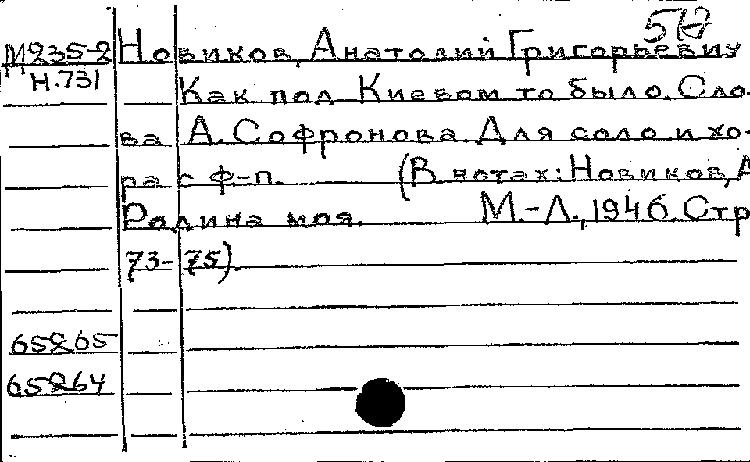 М235-2 Новиков, Анатолий Григорьевич
Н.731 Как под Киевом то было. Сло-
ва А. Софронова. Для соло и хо-
ра с ф-п. (В нотах: Новиков, А
Родина моя. М.-Л., 1946. Стр
73-75).
65265
65264